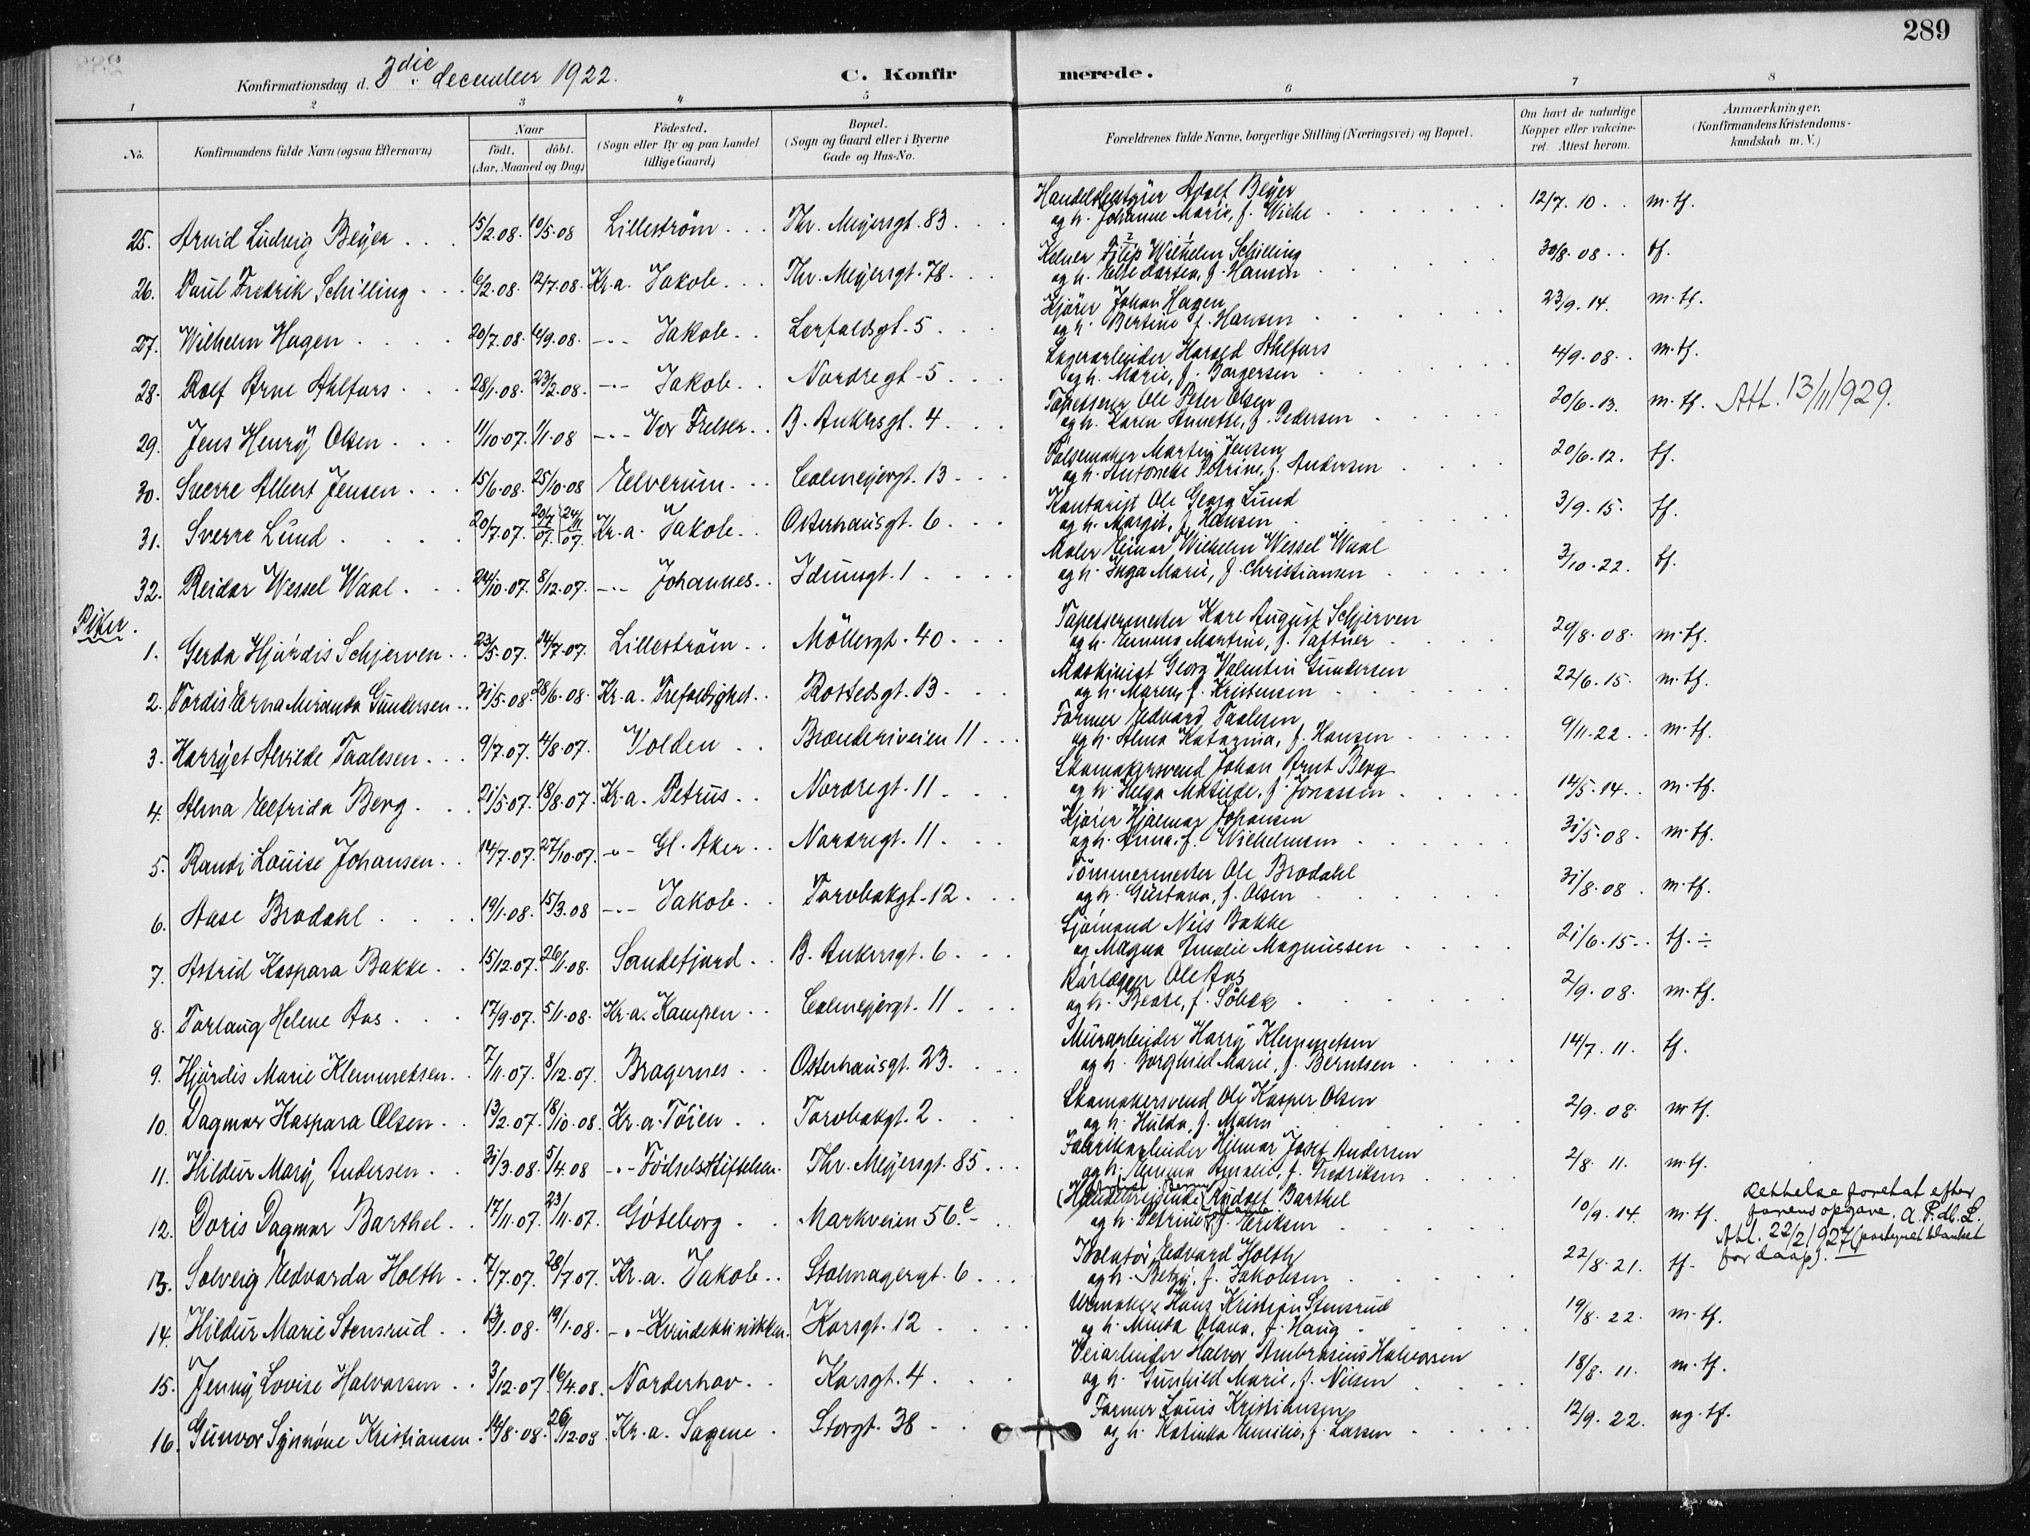 289
Konfirmationsdag d. 3die december 1922.
C. Konfirmerede.
1 2 3 4 5 6 7 8
No.
Konfirmandens fulde Navn (ogsaa Efternavn)
Naar
født. døbt.
(Aar, Maaned og Dag)
Fødested.
(Sogn eller By og paa Landet
tillige Gaard)
Bopæl.
(Sogn og Gaard eller i Byerne
Gade og Hus-No.
Forældrenes fulde Navne, borgerlige Stilling (Næringsvei) og Bopæl.
Om havt de naturlige
Kopper eller vakcine-
ret. Attest herom.
Anmærkninger.
(Konfirmandens Kristendoms-
kundskab m. V.)
Adolf Beyer
25. Arvid Ludvig Beyer 15/2.08. 10/5.08 Lillestrøm Thr. Meyersgt. 83 og h. Johanne Marie, f. Wiche 12/7.10 m.tf.
Kelner Filip Wilhelm Schilling
26. Paul Fredrik Schilling 6/2.08. 12/7.08. Kr.a. Jakob Thr. Meyersgt. 78 og h. Larsen, f. Hansen 30/8.08 tf.
Kjører Johan Hagen
27. Wilhelm Hagen 20/7.08. 6/9.08. -"- Jakob Lerfaldsgt. 5 og h. Bertine f. Hansen 23/9.14. m.tf.
Lagerarbeider Harald Ahlfars
28. Rolf Arne Ahlfars 28/1.08. 23/2.08. -"- Jakob Nordregt. 5 og h. Marie, f. Borgersen 4/9.08. m.tf.
Tapetserer Ole Peter Olsen
29. Jens Henry Olsen 11/10.07. 1/1.08 -"- Vor Frelser B. Ankersgt. 4 og h. Karen Annette, f. Pedersen 20/6.13. m.tf. Att. 13/11/929.
Pølsemaker Martin Jensen
30. Sverre Albert Jensen 15/6.08. 25/10.08 Elverum Calmeyersgt. 13 og h. Antonette Petrine, f. Andersen 20/6.12. tf.
Kontorist Ole Georg Lund
31. Sverre Lund 20/7.07. 20/7 07. 24/11 07. Kr.a. Jakob Osterhausgt. 6 og h. Margit, f. Hansen 3/9.15. tf.
Maler Einar Wilhelm Wessel Waal
32. Reidar Wessel Waal 24/10.07. 8/12.07. -"- Johannes Idunsgt. 1 og h. Inga Marie, f. Christiansen 3/10.22. tf.
Piker.
Tapetserermester Karl August Schjerven
1. Gerda Hjørdis Schjerven 23/5.07. 14/7.07. Lillestrøm Møllergt. 40 og h. Emma Martine, f. 29/8.08. m.tf.
Maskinist Georg Valentin Gundersen
2. Tordis Erna Miranda Gundersen 31/5.08 28/6.08 Kr.a. Trefoldighet Rostedsgt. 13 og h. Maren, f. Kristensen 22/6.15. m.tf.
Former Edvard Paulsen
3. Harryet Alvilde Paulsen 9/7.07. 4/8.07. Volden Brænderiveien 11 og h. Alma Katarina, f. Hansen 9/11.22 m.tf.
Skomakersvend Johan Arnt Berg
4. Alma Elfrida Berg 21/5.07. 18/8.07. Kr.a. Petrus Nordregt. 11 og h. Helga Matilde, f. Jonassen 14/5.14 m.tf.
Kjører Hjalmar Johansen
5. Randi Louise Johansen 14/7.07. 27/10.07. -"- Gl. Aker Nordregt. 11 og h. Anna, f. Wilhelmsen 31/5.08 m.tf.
Tømmermester Ole Brodahl
6. Aase Brodahl 19/1.08. 15/3.08 -"- Jakob Torvbakgt. 12 og h. Gustava, f. Olsen 31/8.08 m.tf.
Sjømand Nils Bakke
7. Astrid Kaspara Bakke 15/12.07. 26/1.08. Sandefjord B. Ankersgt. 6 og Magna Amalie Magnussen 21/6.15. tf. ÷
Rørlægger Ole Aas
8. Torlaug Helene Aas 17/9.07. 5/1.08. Kr.a. Kampen Calmeyersgt. 11 og h. Beate, f. 2/9.08. m.tf.
Murarbeider Harry Klemmetsen
9. Hjørdis Marie Klemmetsen 7/11.07. 8/12.07. Bragernes Osterhausgt. 23. og h. Borghild Marie, f. Berntsen 14/7.11. tf.
Skomakersvend Ole Kasper Olsen
10. Dagmar Kaspara Olsen 13/2.07. 18/10.08. Kr.a. Tøien Torvbakgt. 2 og h. Hulda, f. Malm 2/9.08. m.tf.
Fabrikarbeider Hilmar Josef Andersen
11. Hildur Mary Andersen 31/3.08. 5/4.08 -"- Fødselsstiftelsen Thr. Meyersgt. 85 og h. Emma Amalie, f. Fredriksen 2/8.11. m.tf.
(Handelsreisende) Rudolf Barthel
12. Doris Dagmar Barthel 17/11.07. 23/11.07. Göteborg Markveien 56 c og h. Petrine f. Eriksen 10/9.14. m.tf.
Rettelse foretat efter
opgave. A. P. dl. L.
Att. 22/2/927 (portugnet blanket
for daap).
Edvard Holth
13. Solveig Edvarda Holth 7/7.07. 28/7.07. Kr.a. Jakob Stolmagergt. 6 og h. Betzy, f. Jakobsen 22/8.21. tf.
Urmaker Hans Kristian Stensrud
14. Hildur Marie Stensrud 13/1.08. 19/1.08. -"- Kvindeklinikken Korsgt. 12 og h. Minda Olava, f. Haug 19/8.22. m.tf.
Veiarbeider Halvor Ambrosius Halvorsen
15. Jenny Lovise Halvorsen 3/12.07 16/4.08. Norderhov Korsgt. 4 og h. Gunhild Marie, f. Nilsen 18/8.11. m.tf.
Former Louis Kristiansen
16. Gunvor Synnøve Kristiansen 14/8.08. 26/12.08 Kr.a. Sagene Storgt. 38 og h. Katinka Emilie, f. Larsen 12/9.22. ng.tf.